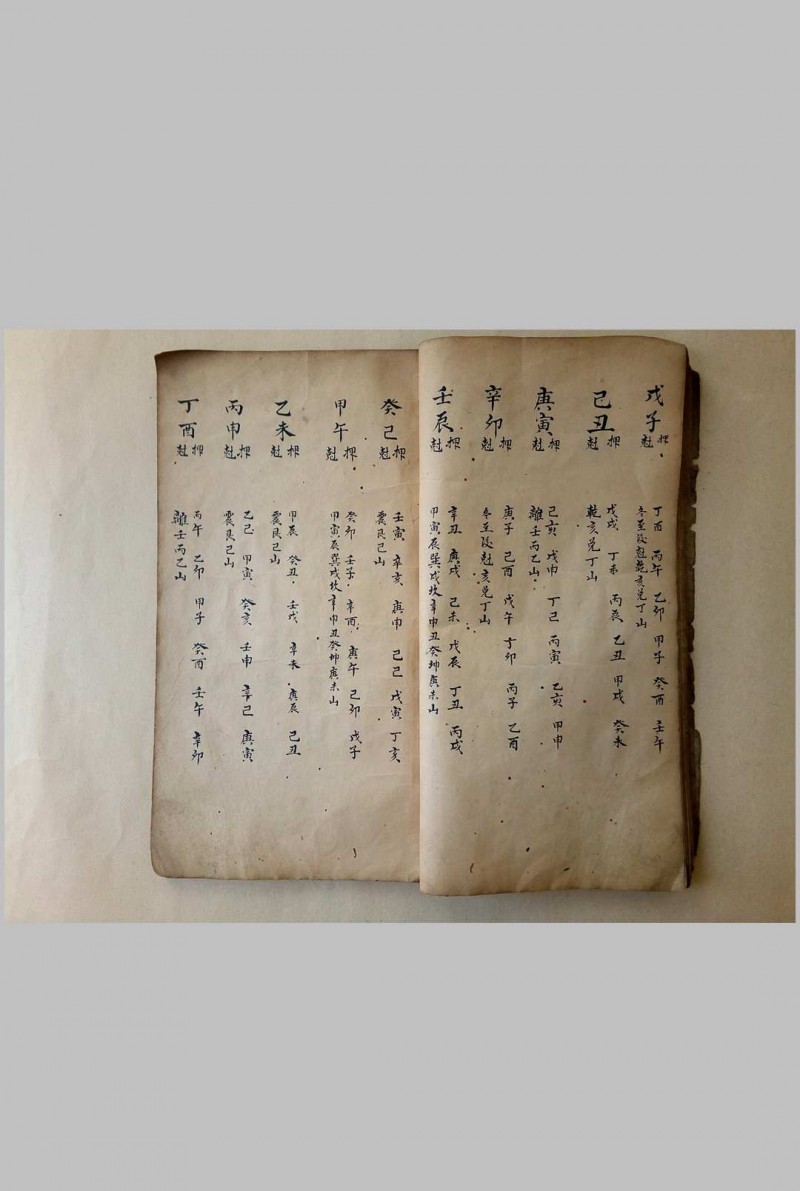 戊子押尅 丁酉 丙午 乙卯 甲子 癸酉 壬午
冬至後尅乾亥兌丁山
己丑押尅 戊戌 丁未 丙辰 乙丑 甲戌 癸未
乾亥兌丁山
庚寅押尅 己亥 戊申 丁巳 丙寅 乙亥 甲申
離壬丙乙山
辛卯押尅 庚子 己酉 戊午 丁卯 丙子 乙酉
冬至後尅亥兌丁山
壬辰押尅 辛丑 庚戌 己未 戊辰 丁丑 丙戌
甲寅辰巽戌坎辛申丑癸坤庚未山
癸巳押尅 壬寅 辛亥 庚申 己巳 戊寅 丁亥
震艮巳山
甲午押尅 癸卯 壬子 辛酉 庚午 己卯 戊子
甲寅辰巽戌坎辛申丑癸坤庚未山
乙未押尅 甲辰 癸丑 壬戌 辛未 庚辰 己丑
震艮巳山
丙申押尅 乙巳 甲寅 癸亥 壬申 辛巳 庚寅
震艮巳山
丁酉押尅 丙午 乙卯 甲子 癸酉 壬午 辛卯
離壬丙乙山